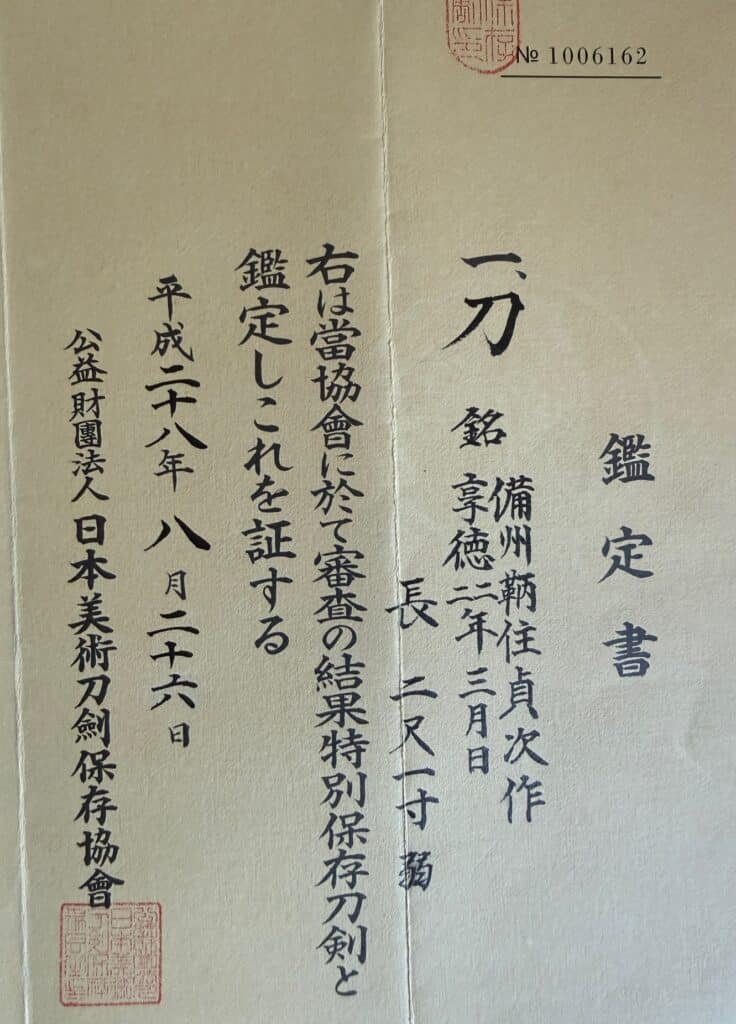 № 1006162
鑑定書
一、刀 銘 備州鞆住貞次作
享徳二二年三月日
長 二尺一寸弱
右は當協會に於て審査の結果特別保存刀剣と
鑑定しこれを証する
平成二十八年八月二十六日
公益財團法人日本美術刀劍保存協會